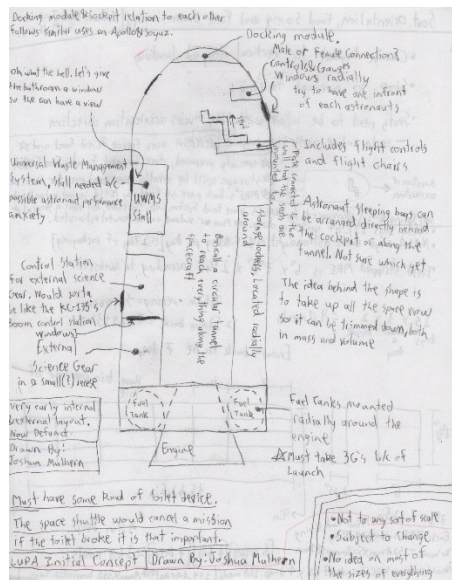 Docking module & cockpit relation to each other
follows similar uses on Apollo & Soyuz.
Docking module.
Male or Female Connection?
Controls & Gauges
Windows radially
try to have one infront
of each astronauts
oh what the hell. Let's give
the bathroom a window
so the can have a view
Includes flight controls
and flight chairs
Path connected to the
wall that the seats are
mounted to
Universal Waste Management
System, Stall needed b/c
possible astronaut performance
anxiety
UWMS
Stall
Astronaut sleeping bags can
be arranged directly behind
the cockpit or along the
tunnel. Not sure which yet
Storage lockers, Located radially
around
Basically a circular tunnel
to reach everything along the
spacecraft
Control Station
for external science
Gear, Would sorta
be like the KC-135's
boom control station
windows
External
Science Gear
in a small(?) recess
The idea behind the shape is
to take up all the space now
so it can be trimmed down, both
in mass and volume
Fuel
Tank
Fuel
Tank
Fuel Tanks mounted
radially around the
engine
Must take 3G's b/c of
Launch
Engine
Very early internal
& external layout.
Now Defunct.
Drawn By:
Joshua Mulhern
Must have some kind of toilet device.
The space shuttle would cancel a mission
if the toilet broke it is that important.
LUPA Initial Concept
Drawn By: Joshua Mulhern
• Not to any sort of scale
• Subject to Change
• No idea on most of
the sizes of everything